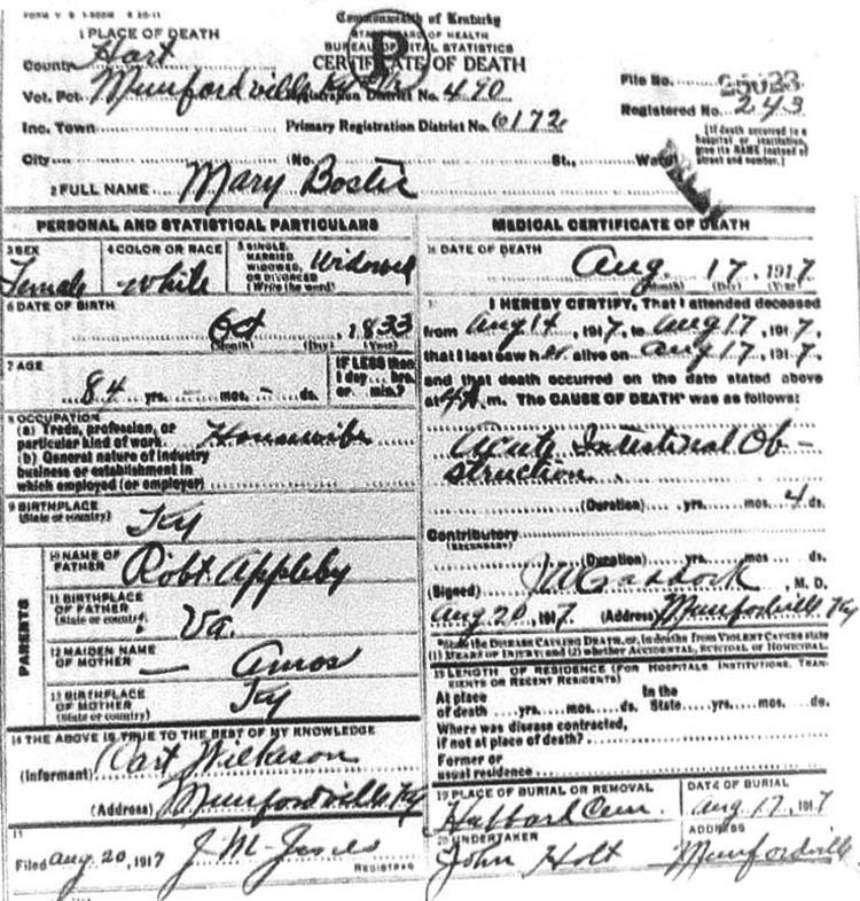 FORM V. S. 1-500M 8 20-11
Commonwealth of Kentucky
STATE BOARD OF HEALTH
BUREAU OF VITAL STATISTICS
CERTIFICATE OF DEATH
1 PLACE OF DEATH
County Hart
Vot. Pct. Munfordville Registration District No. 490
File No.
Registered No. 243
Inc. Town Primary Registration District No. 6172
[If death occurred in a hospital or institution, give its NAME instead of street and number.]
City (No. St., Ward)
2 FULL NAME Mary Bostic
PERSONAL AND STATISTICAL PARTICULARS
3 SEX Female
4 COLOR OR RACE White
5 SINGLE, MARRIED, WIDOWED, OR DIVORCED (Write the word) Widowed
6 DATE OF BIRTH
Oct, 1833
(Month) (Day) (Year)
7 AGE
84 yrs. – mos. – ds.
IF LESS than 1 day... hrs. or... min.?
8 OCCUPATION
(a) Trade, profession, or particular kind of work Housewife
(b) General nature of industry
business or establishment in
which employed (or employer)
9 BIRTHPLACE
(State or country) Ky
PARENTS
10 NAME OF FATHER Robt. Appleby
11 BIRTHPLACE OF FATHER (State or country) Va.
12 MAIDEN NAME OF MOTHER — Amos
13 BIRTHPLACE OF MOTHER (State or country) Ky
14 THE ABOVE IS TRUE TO THE BEST OF MY KNOWLEDGE
(Informant) Cart Wilkason
(Address) Munfordville Ky
15
Filed Aug 20, 1917 J. M. Jones
REGISTRAR
MEDICAL CERTIFICATE OF DEATH
16 DATE OF DEATH
Aug. 17, 1917
(Month) (Day) (Year)
17 I HEREBY CERTIFY, That I attended deceased
from Aug 14, 1917, to Aug 17, 1917,
that I last saw her alive on Aug 17, 1917,
and that death occurred on the date stated above
at 4 A.m. The CAUSE OF DEATH* was as follows:
Acute Intestinal Ob-
struction.
(Duration) yrs. mos. 4 ds.
Contributory
(SECONDARY)
(Duration) yrs. mos. ds.
(Signed) J A Craddock, M. D.
Aug 20, 1917. (Address) Munfordville Ky
*State the DISEASE CAUSING DEATH, or, in deaths from VIOLENT CAUSES state
(1) MEANS OF INJURY; and (2) whether ACCIDENTAL, SUICIDAL or HOMICIDAL.
18 LENGTH OF RESIDENCE (FOR HOSPITALS INSTITUTIONS, TRAN-
SIENTS OR RECENT RESIDENTS)
At place of death yrs. mos. ds. In the State yrs. mos. ds.
Where was disease contracted,
if not at place of death?
Former or
usual residence
19 PLACE OF BURIAL OR REMOVAL
Hubbard Cem.
DATE OF BURIAL
Aug. 17, 1917
20 UNDERTAKER
John Holt
ADDRESS
Munfordville